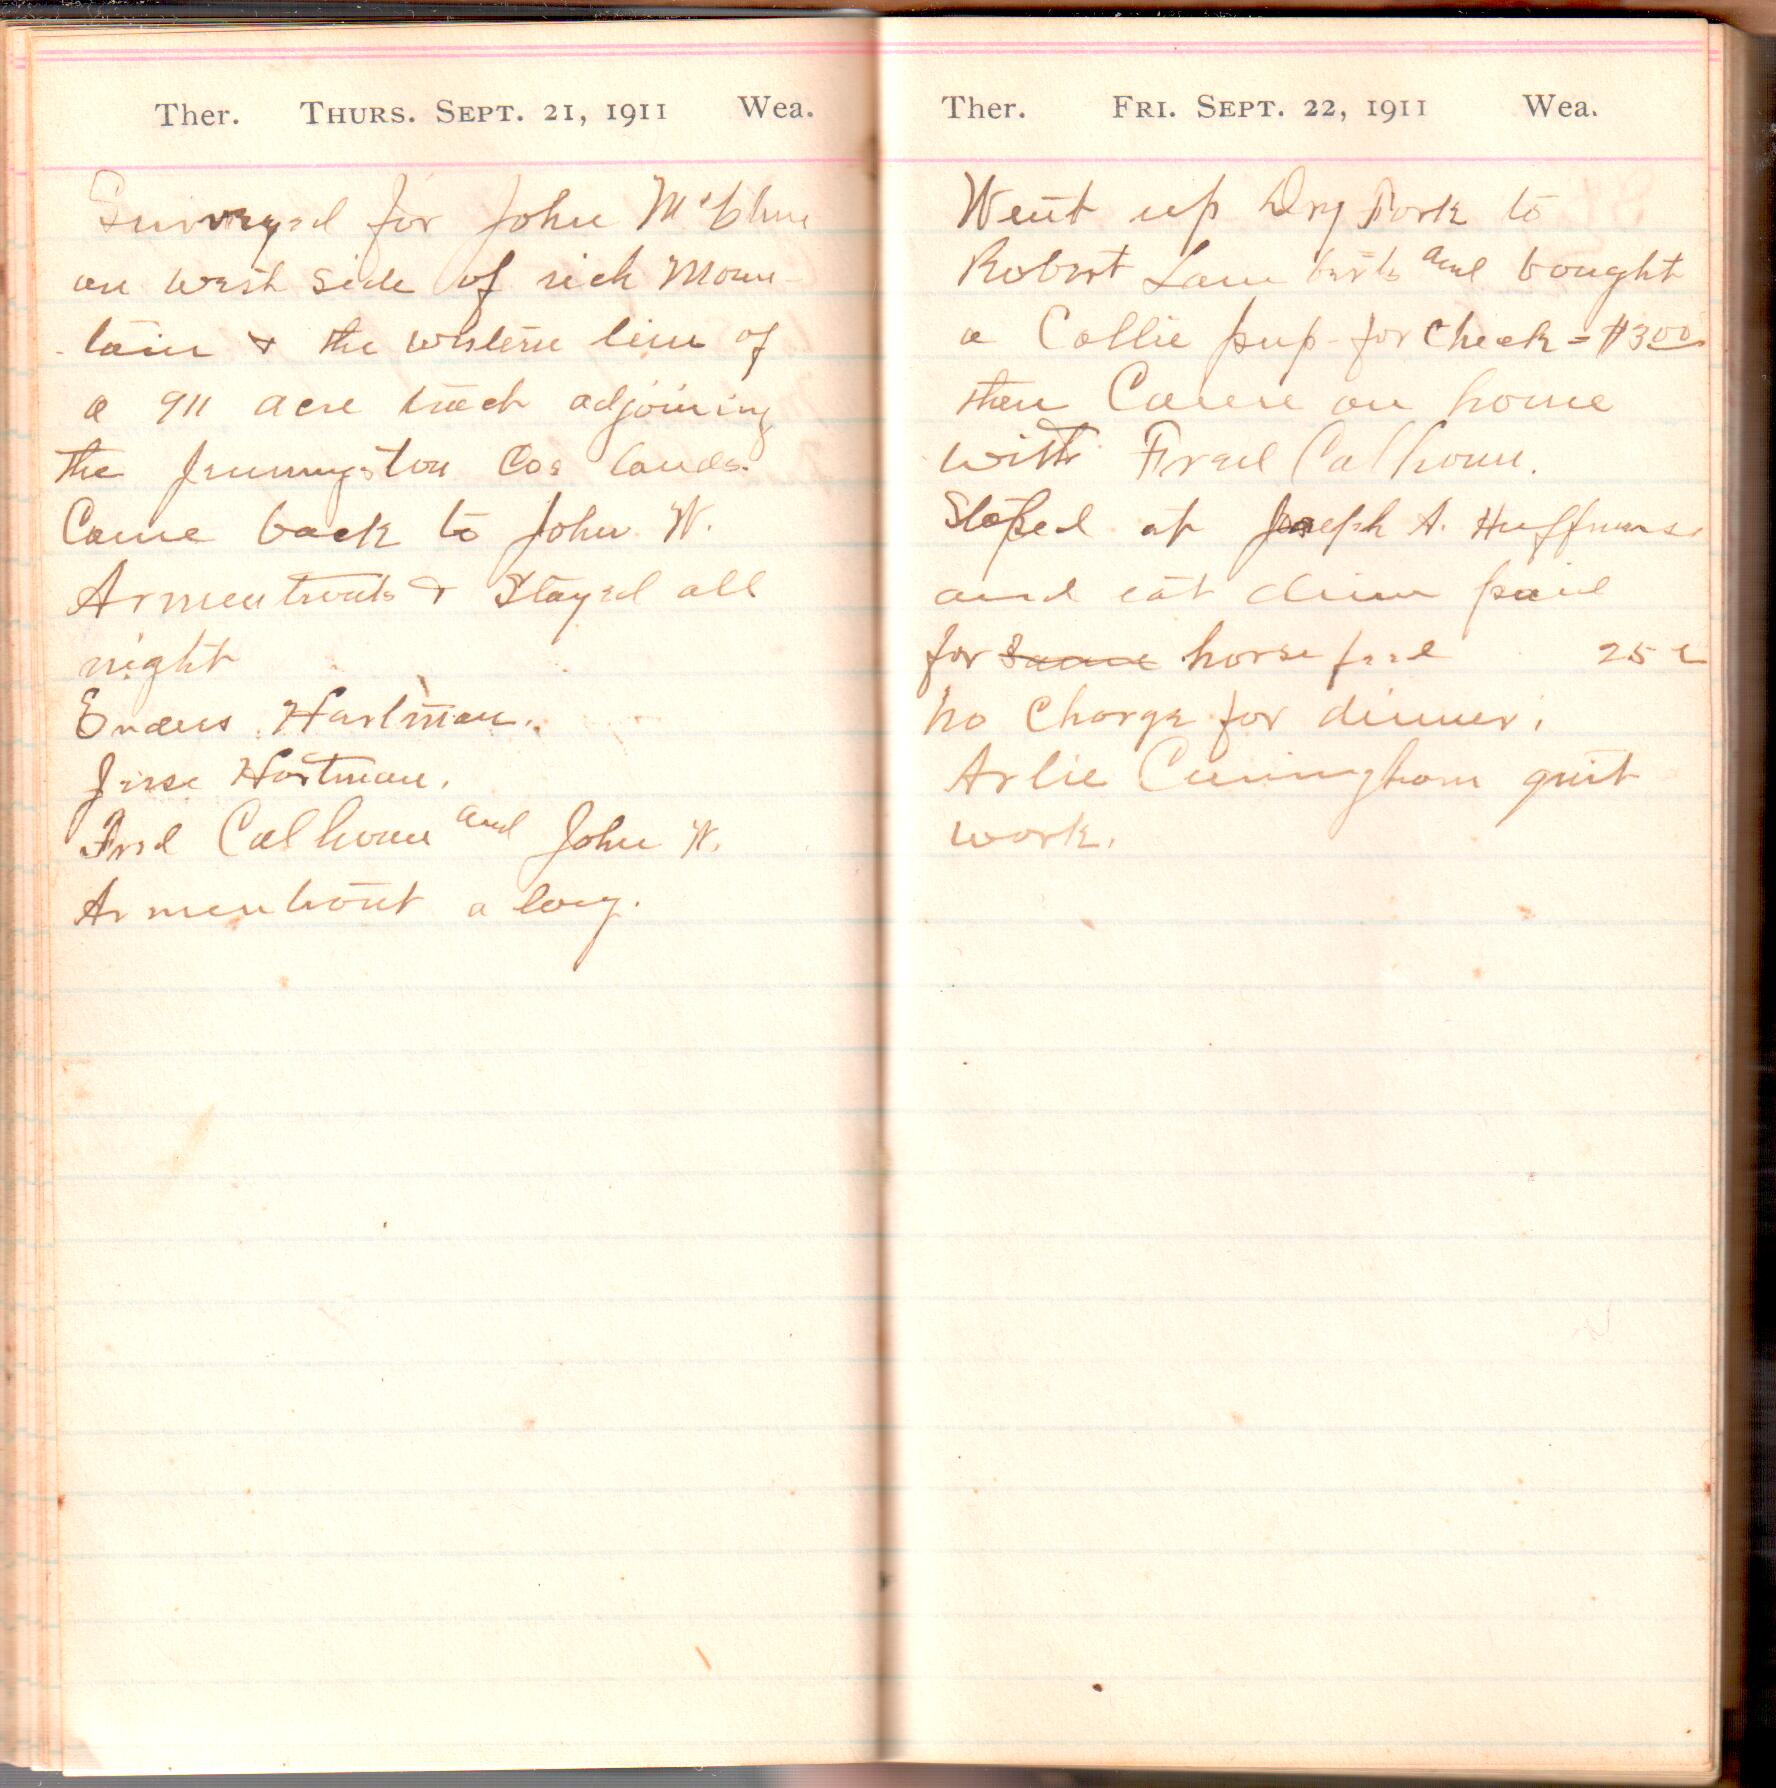 Ther. THURS. SEPT. 21, 1911 Wea.
Surveyed for John McClure
on west side of rich Moun-
tain & the western line of
a 911 acre tract adjoining
the Jenningston Cos lands.
Came back to John W.
Armentrouts & Stayed all
night
Enders Hartman.
Jesse Hartman.
Fred Calhoun and John W.
Armentrout a long.
Ther. FRI. SEPT. 22, 1911 Wea.
Went up Dry Fork to
Robert and bought
a Collie pup for check = $3.00
then Came on home
with Fred Calhoun.
Stoped at Joseph A. Huffmans
and eat dinner paid
for same horse feed 25 c
No Charge for dinner.
Arlie Cuningham quit
work.